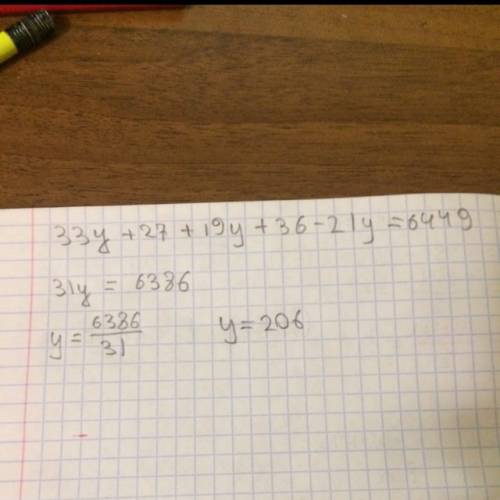 33y + 27 + 19y + 36 - 21y = 6449
31y = 6386
y = 6386/31 y = 206